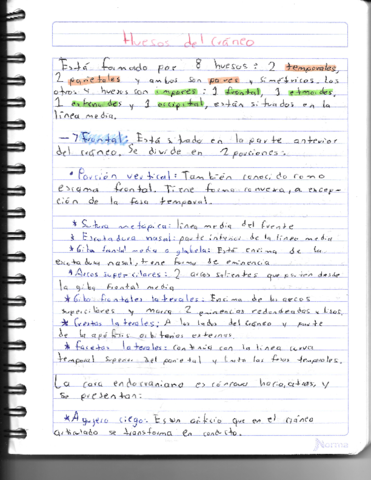 Huesos del cráneo
Está formado por 8 huesos: 2 temporales,
2 parietales y ambos son pares y simétricos. Los
otros 4 huesos son impares: 1 frontal, 1 etmoides,
1 esfenoides y 1 occipital, están situados en la
línea media.
→ Frontal: Está situado en la parte anterior
del cráneo. Se divide en 2 porciones:
• Porción vertical: También conocido como
escama frontal. Tiene forma convexa, a excep-
ción de la fosa temporal.
* Sutura metópica: línea media del frente
* Escotadura nasal: parte inferior de la línea media
* Giba frontal media o glabela: Está encima de la
escotadura nasal, tiene forma de eminencia
* Arcos superciliares: 2 arcos salientes que parten desde
la giba frontal media
* Gibas frontales laterales: Encima de los arcos
superciliares y marca 2 eminencias redondeadas
* Crestas laterales: A los lados del cráneo y parte
de la apófisis orbitarias externas.
* Facetas laterales: continúa con la línea curva
temporal superior del parietal y las fosas temporales.
La cara endocraneana es cóncava hacia atrás, y
se presentan:
* Agujero ciego: Es un orificio que en el cráneo
articulado se transforma en conducto.
Norma